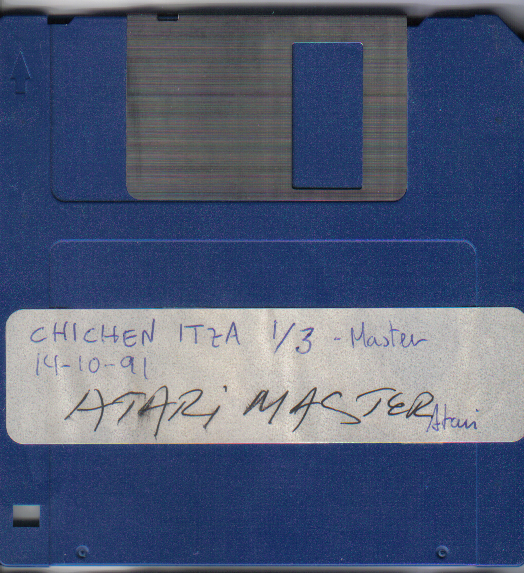 CHICHEN ITZA 1/3 - Master
14-10-91
ATARi MASTER Atari